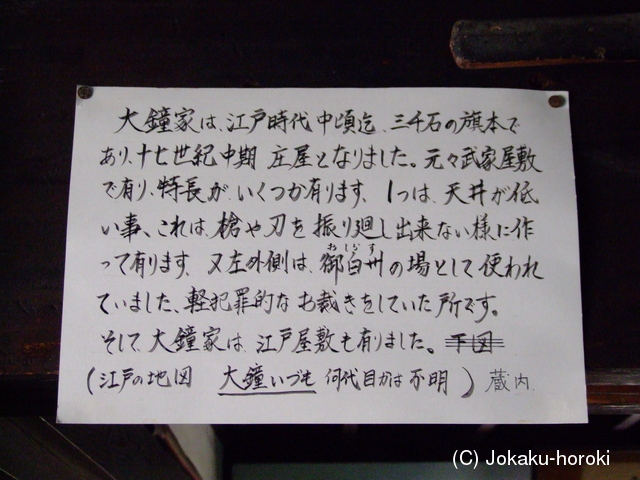 大鐘家は、江戸時代中頃迄、三千石の旗本で
あり、十七世紀中期 庄屋となりました。元々武家屋敷
で有り、特長が いくつか有ります、1つは、天井が低
い事、これは、槍や刀を振り廻し出来ない様に作
って有ります、又左外側は、御白州の場として使われ
おしらす
ていました、軽犯罪的なお裁きをしていた所です。
そして、大鐘家は、江戸屋敷も有りました。下図
(江戸の地図 大鐘いづも 何代目かは不明) 蔵内
(C) Jokaku-horoki